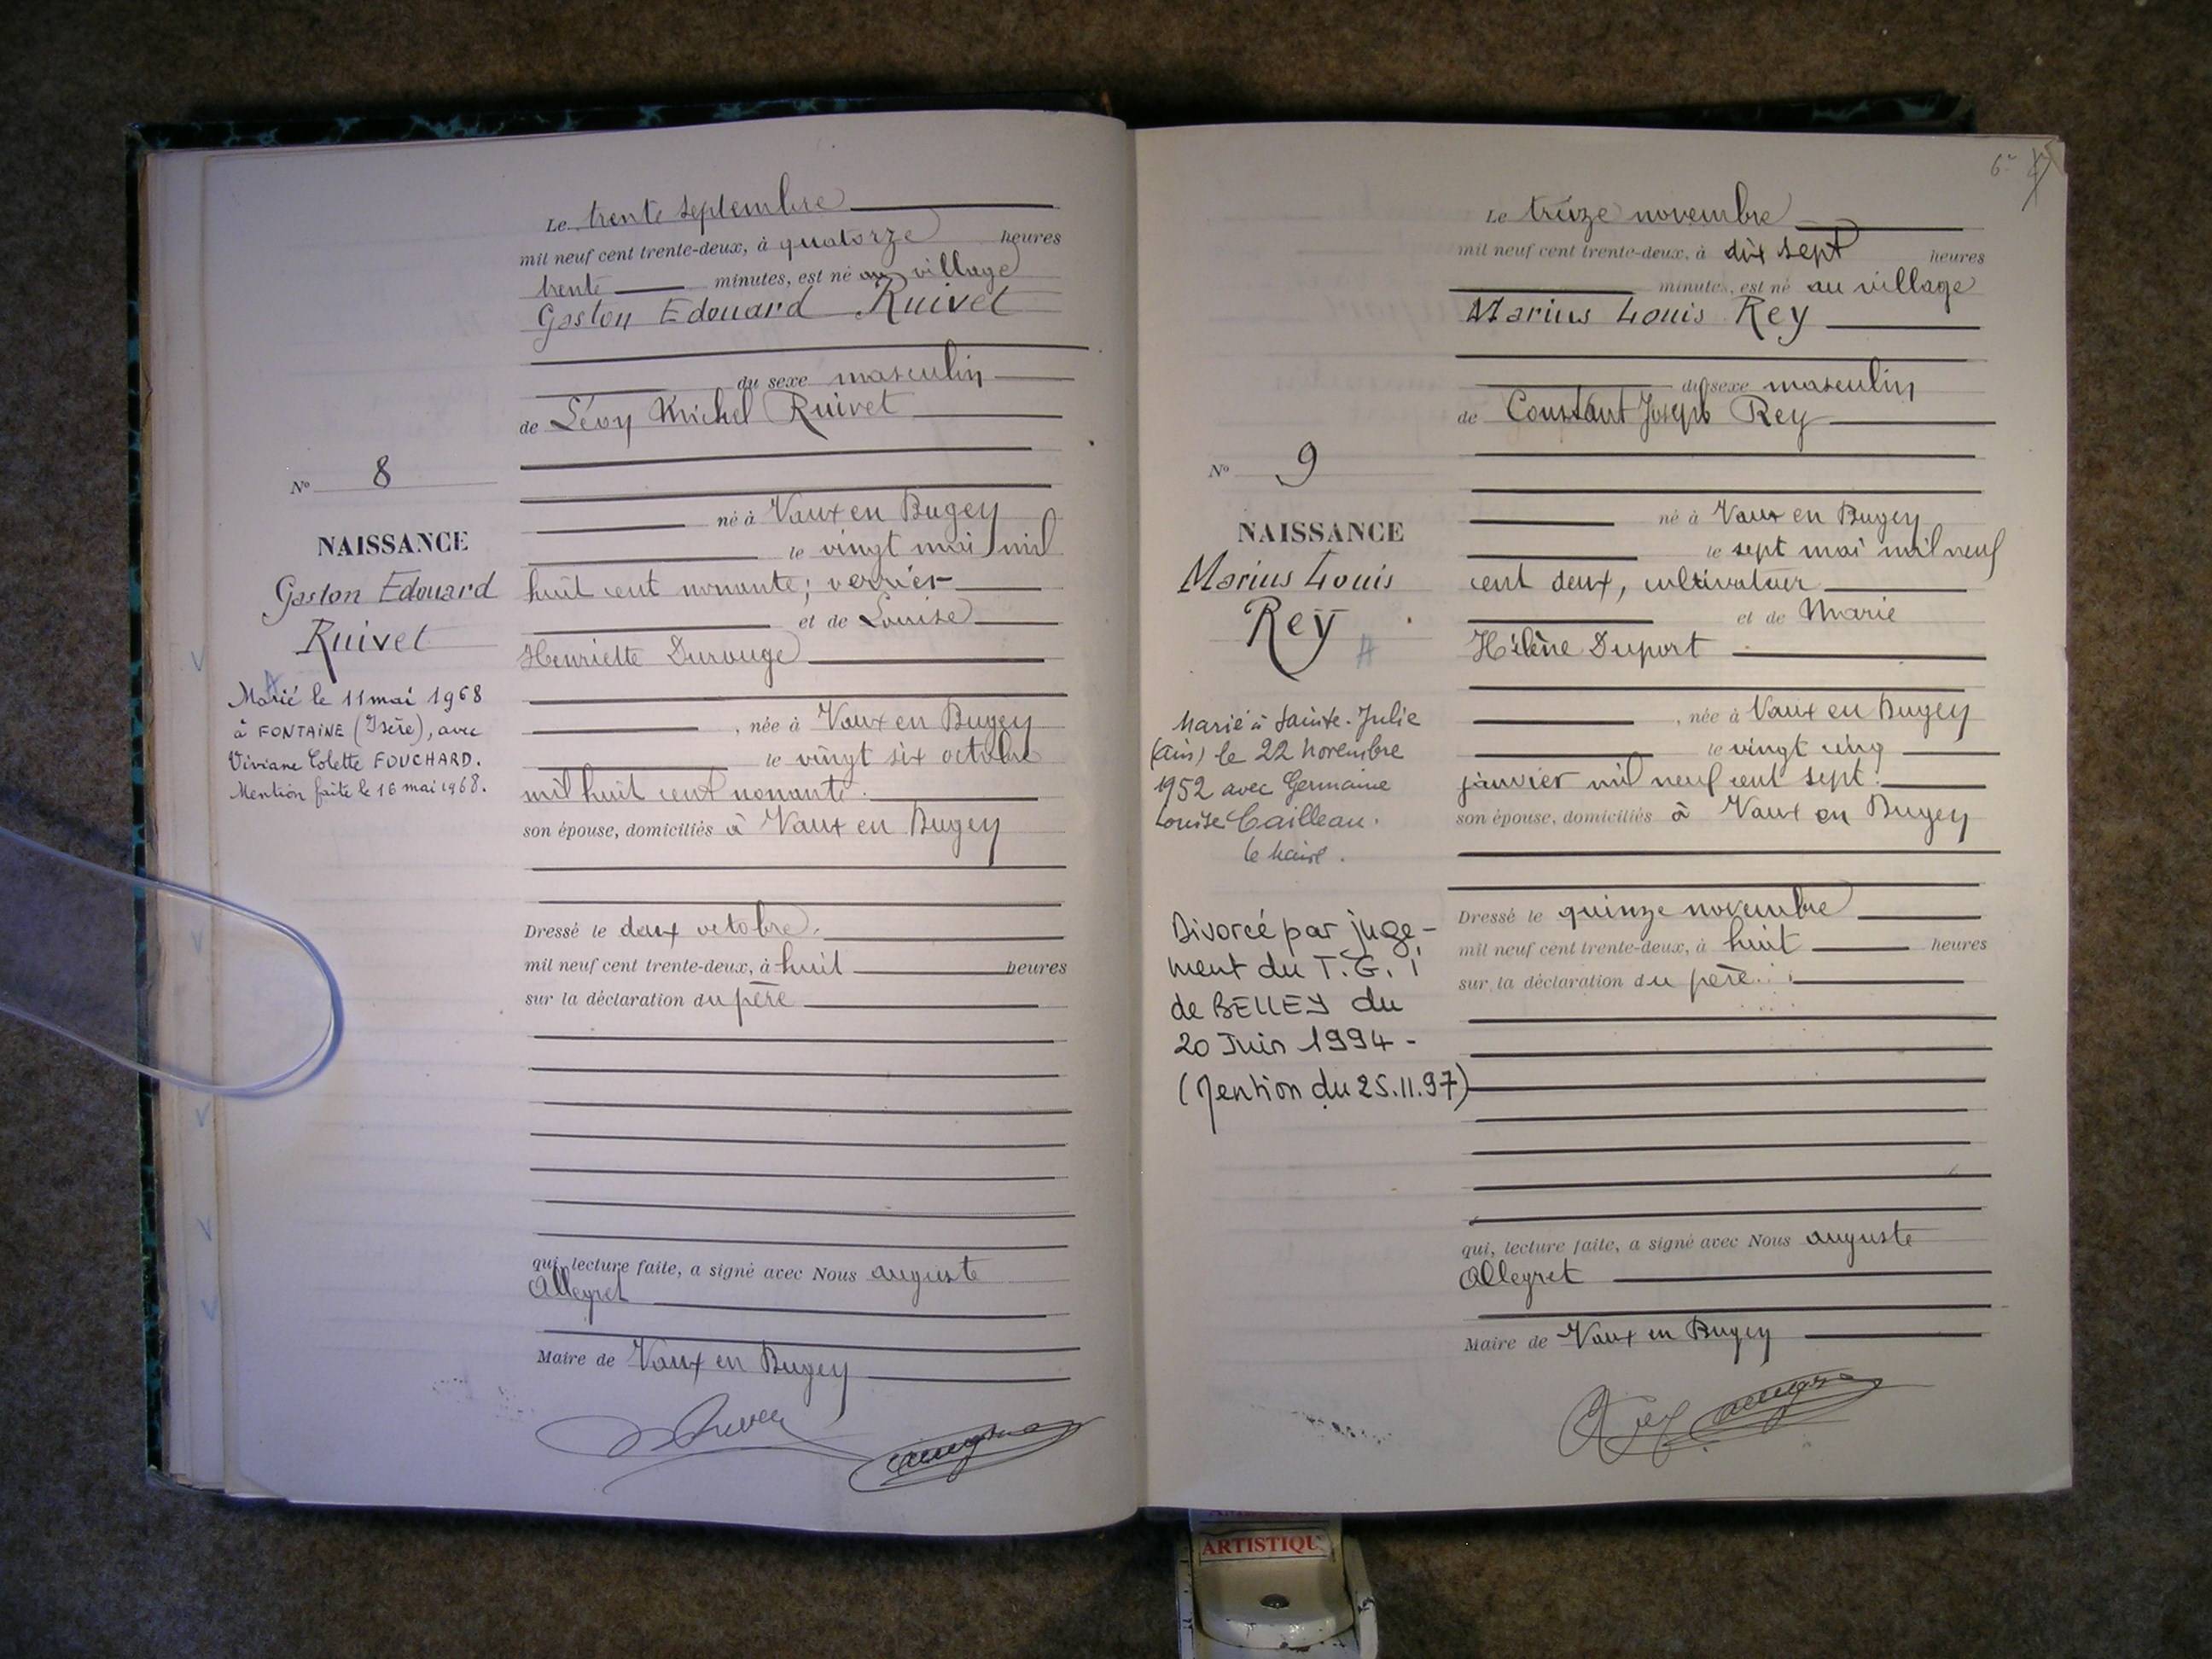 Le trente septembre
mil neuf cent trente-deux, à quatorze heures
trente minutes, est né au village
Gaston Edouard Ruivet
du sexe masculin
de Lévy Michel Ruivet
né à Vaux en Bugey
le vingt mai mil
huit cent nonante; verrier
et de Louise
Henriette Durouge
, née à Vaux en Bugey
le vingt six octobre
mil huit cent nonante.
son épouse, domiciliés à Vaux en Bugey
Dressé le deux octobre.
mil neuf cent trente-deux, à huit heures
sur la déclaration du père
qui, lecture faite, a signé avec Nous auguste
Alleyret
Maire de Vaux en Bugey
N° 8
NAISSANCE
Gaston Edouard
Ruivet
Marié le 11 mai 1968
à FONTAINE (Isère), avec
Viviane Colette FOUCHARD.
Mention faite le 16 mai 1968.
6
Le treize novembre
mil neuf cent trente-deux, à dix sept heures
minutes, est né au village
Marius Louis Rey
du sexe masculin
de Constant Joseph Rey
né à Vaux en Bugey
le sept mai mil neuf
cent deux, cultivateur
et de Marie
Hélène Duport
, née à Vaux en Bugey
le vingt cinq
janvier mil neuf cent sept.
son épouse, domiciliés à Vaux en Bugey
Dressé le quinze novembre
mil neuf cent trente-deux, à huit heures
sur la déclaration du père
qui, lecture faite, a signé avec Nous auguste
Alleyret
Maire de Vaux en Bugey
N° 9
NAISSANCE
Marius Louis
Rey
Marié à Sainte-Julie
(Ain) le 22 novembre
1952 avec Germaine
Louise Cailleau.
le maire.
Divorcé par juge-
ment du T.G.I
de BELLEY du
20 Juin 1994 -
(Mention du 25.11.97)
ARTISTIQU